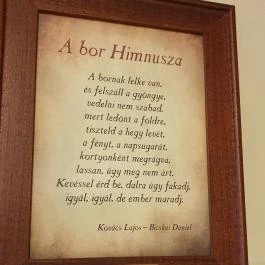 A bor Himnusza
A bornak lelke van,
és felszáll a gyöngye,
vedelni nem szabad,
mert ledönt a földre,
tiszteld a hegy levét,
a fényt, a napsugarát,
kortyonként megrágva,
lassan, úgy meg nem árt.
Kevéssel érd be, dalra úgy fakadj,
igyál, igyál, de ember maradj.
Kovács Lajos – Bicskei Dániel